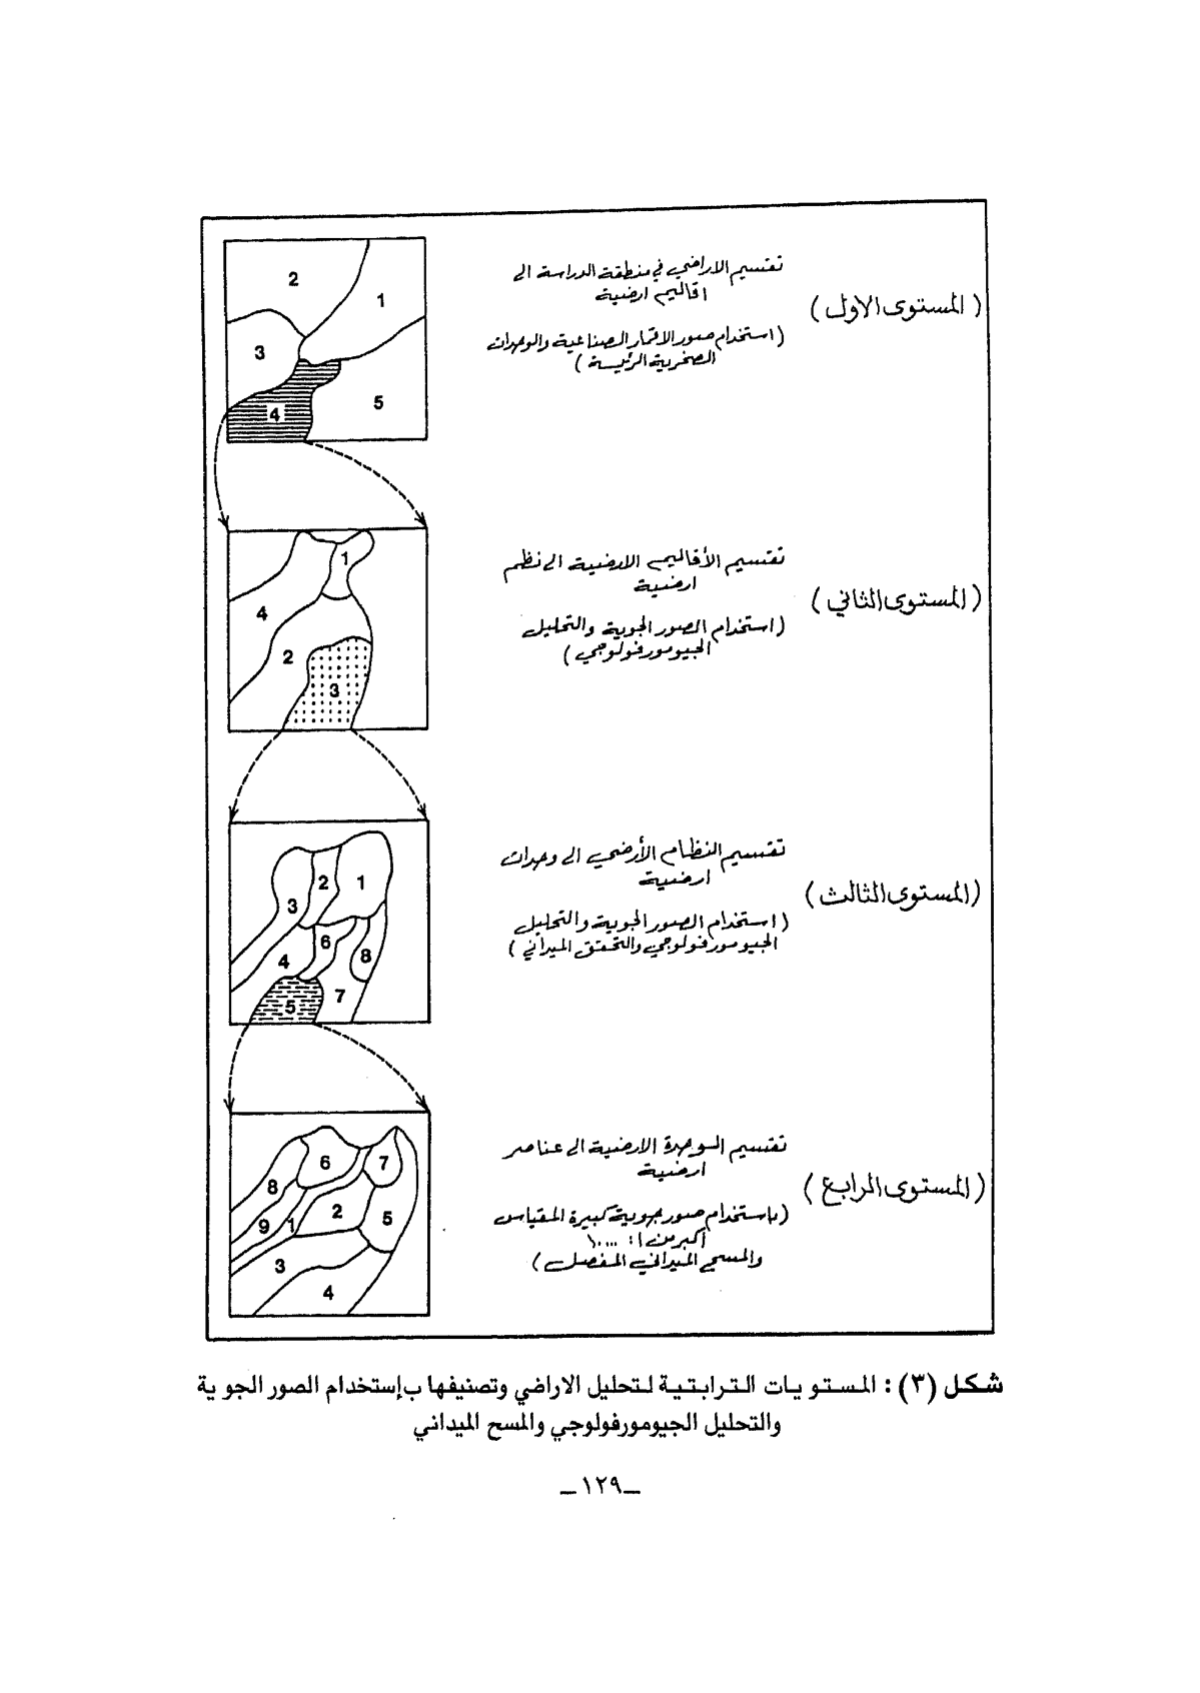 (المستوى الاول)
تقسيم الاراضي في منطقة الدراسة الى
اقاليم ارضية
(استخدام صور الاقمار الصناعية والوحدات
الصخرية الرئيسة)
2
1
3
4
5
(المستوى الثاني)
تقسيم الأقاليم الارضية الى نظم
ارضية
(استخدام الصور الجوية والتحليل
الجيومورفولوجي)
1
4
2
3
(المستوى الثالث)
تقسيم النظام الأرضي الى وحدات
ارضية
(استخدام الصور الجوية والتحليل
الجيومورفولوجي والتحقق الميداني)
2
1
3
6
4
8
5
7
(المستوى الرابع)
تقسيم الوحدة الارضية الى عناصر
ارضية
(باستخدام صور جوية كبيرة المقياس
أكبر من ١: ١٠٠٠٠
والمسح الميداني المفصل)
6
7
8
2
9
1
5
3
4
شكل (٣): المستويات الترابتية لتحليل الاراضي وتصنيفها بإستخدام الصور الجوية
والتحليل الجيومورفولوجي والمسح الميداني
ـ١٢٩ـ